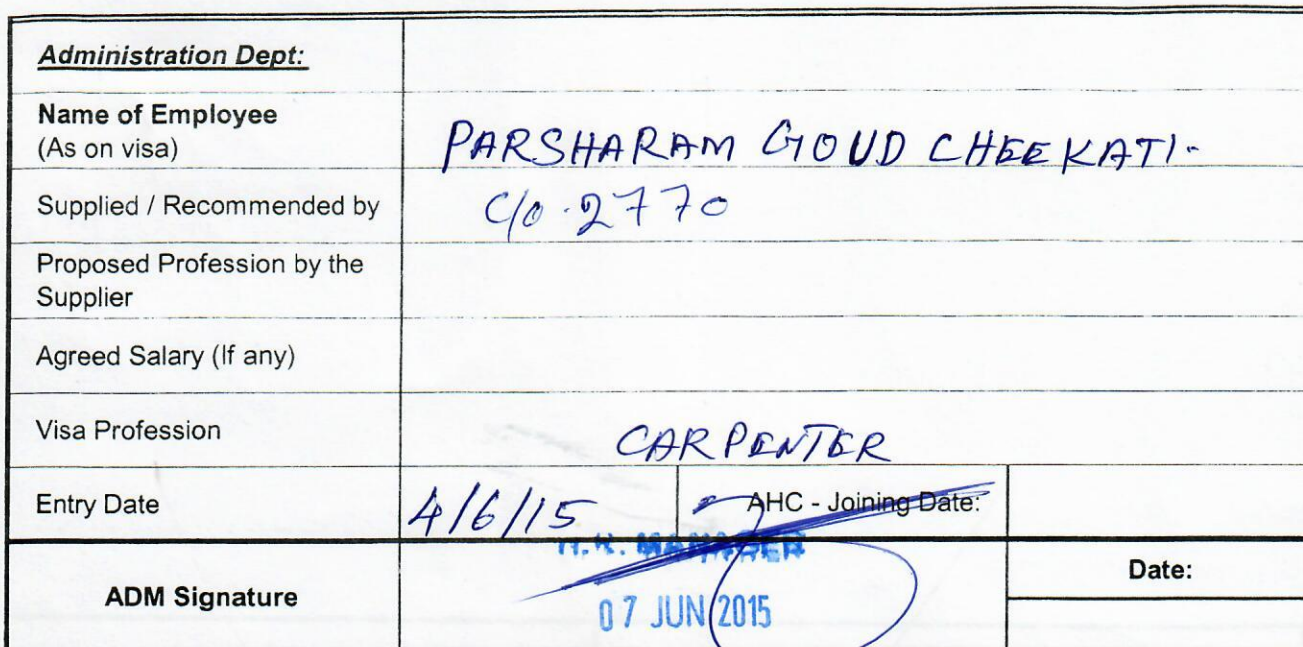 Administration Dept:
Name of Employee
(As on visa)
PARSHARAM GOUD CHEEKATI.
Supplied / Recommended by
C/o. 2770
Proposed Profession by the
Supplier
Agreed Salary (If any)
Visa Profession
CARPENTER
Entry Date
4/6/15
AHC - Joining Date:
H.R. MANAGER
ADM Signature
07 JUN 2015
Date: